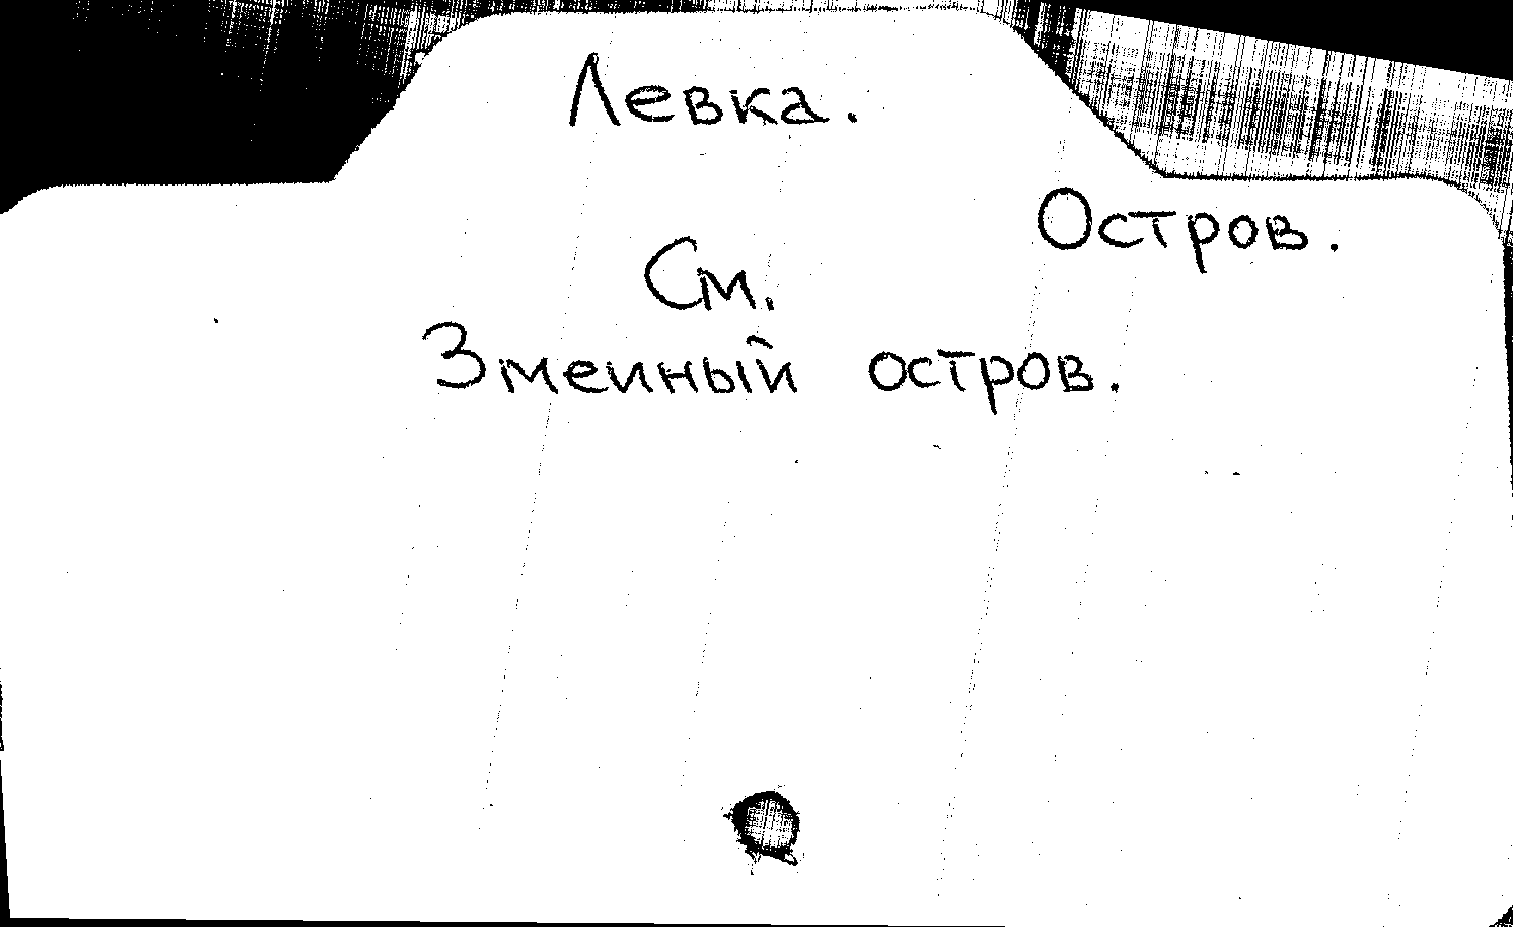 Левка.
Остров.
См.
Змеиный остров.